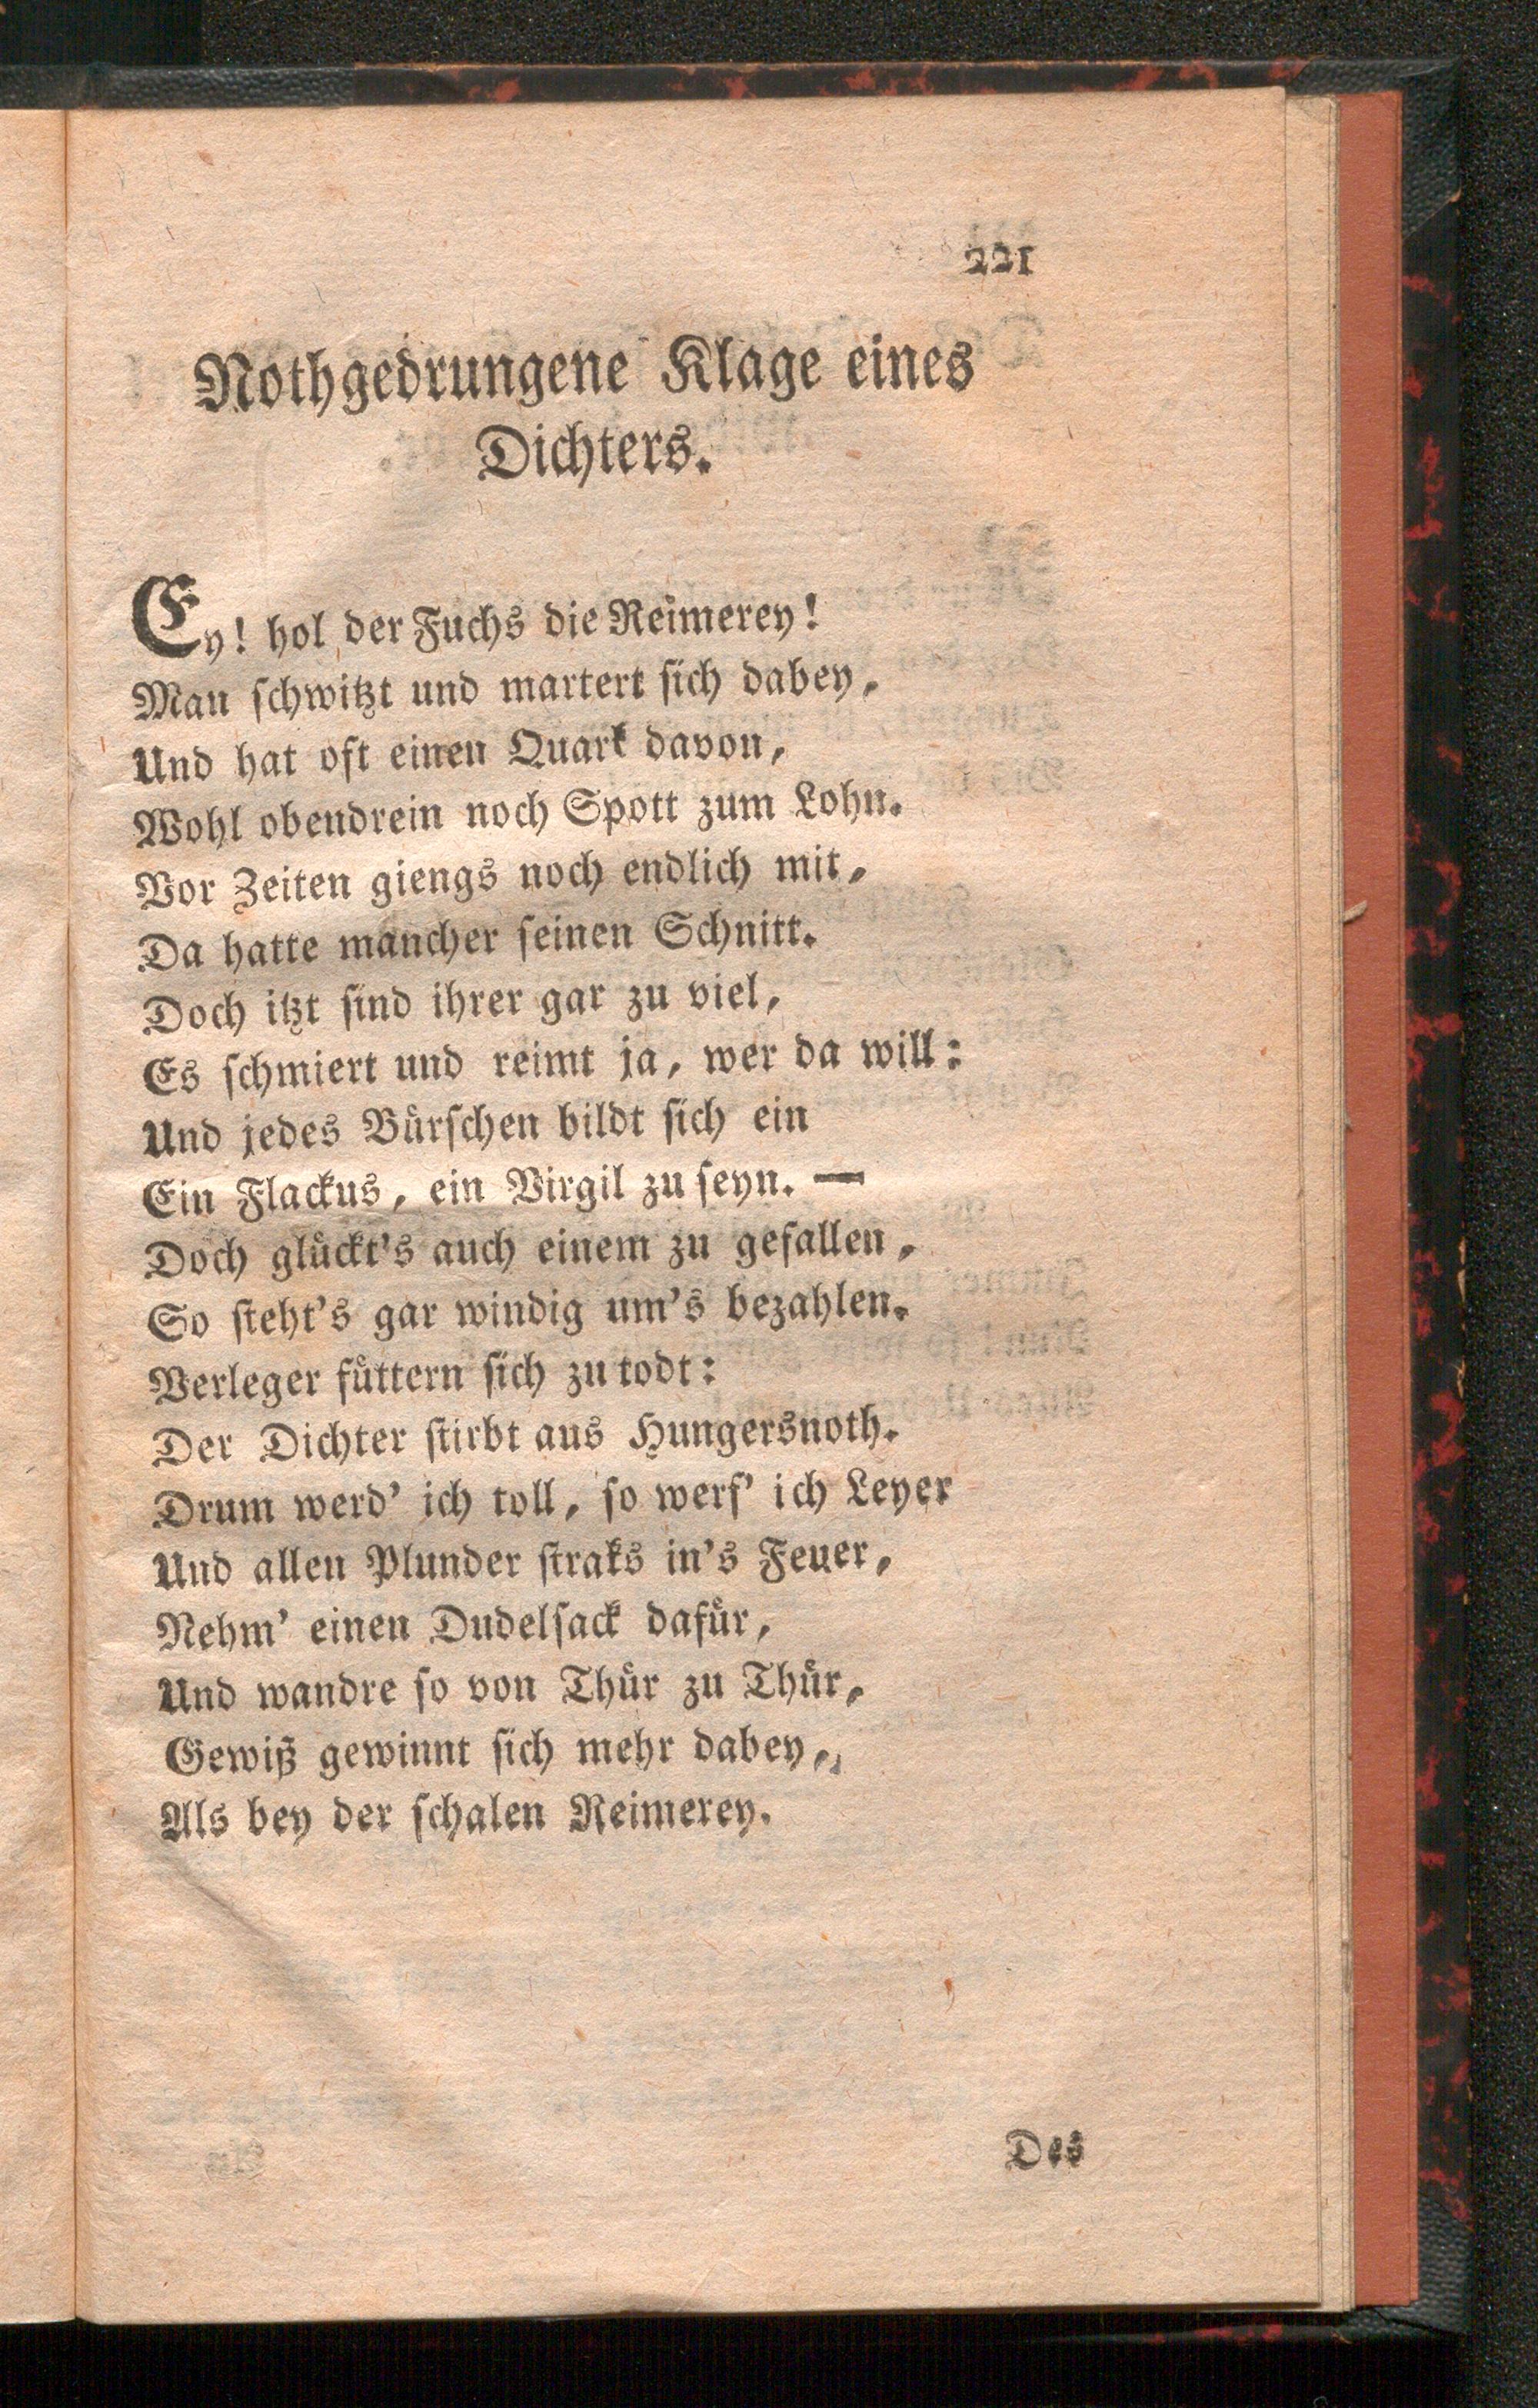 221
Nothgedrungene Klage eines
Dichters.
Ey! hol der Fuchs die Reimerey!
Man ſchwitzt und martert ſich dabey,
Und hat oft einen Quark davon,
Wohl obendrein noch Spott zum Lohn.
Vor Zeiten giengs noch endlich mit,
Da hatte mancher ſeinen Schnitt.
Doch itzt ſind ihrer gar zu viel,
Es ſchmiert und reimt ja, wer da will:
Und jedes Bürſchen bildt ſich ein
Ein Flackus, ein Virgil zu ſeyn. —
Doch glückt's auch einem zu gefallen,
So ſteht's gar windig um's bezahlen.
Verleger füttern ſich zu todt:
Der Dichter ſtirbt aus Hungersnoth.
Drum werd' ich toll, ſo werf' ich Leyer
Und allen Plunder ſtraks in's Feuer,
Nehm' einen Dudelſack dafür,
Und wandre ſo von Thür zu Thür,
Gewiß gewinnt ſich mehr dabey,
Als bey der ſchalen Reimerey.
Des